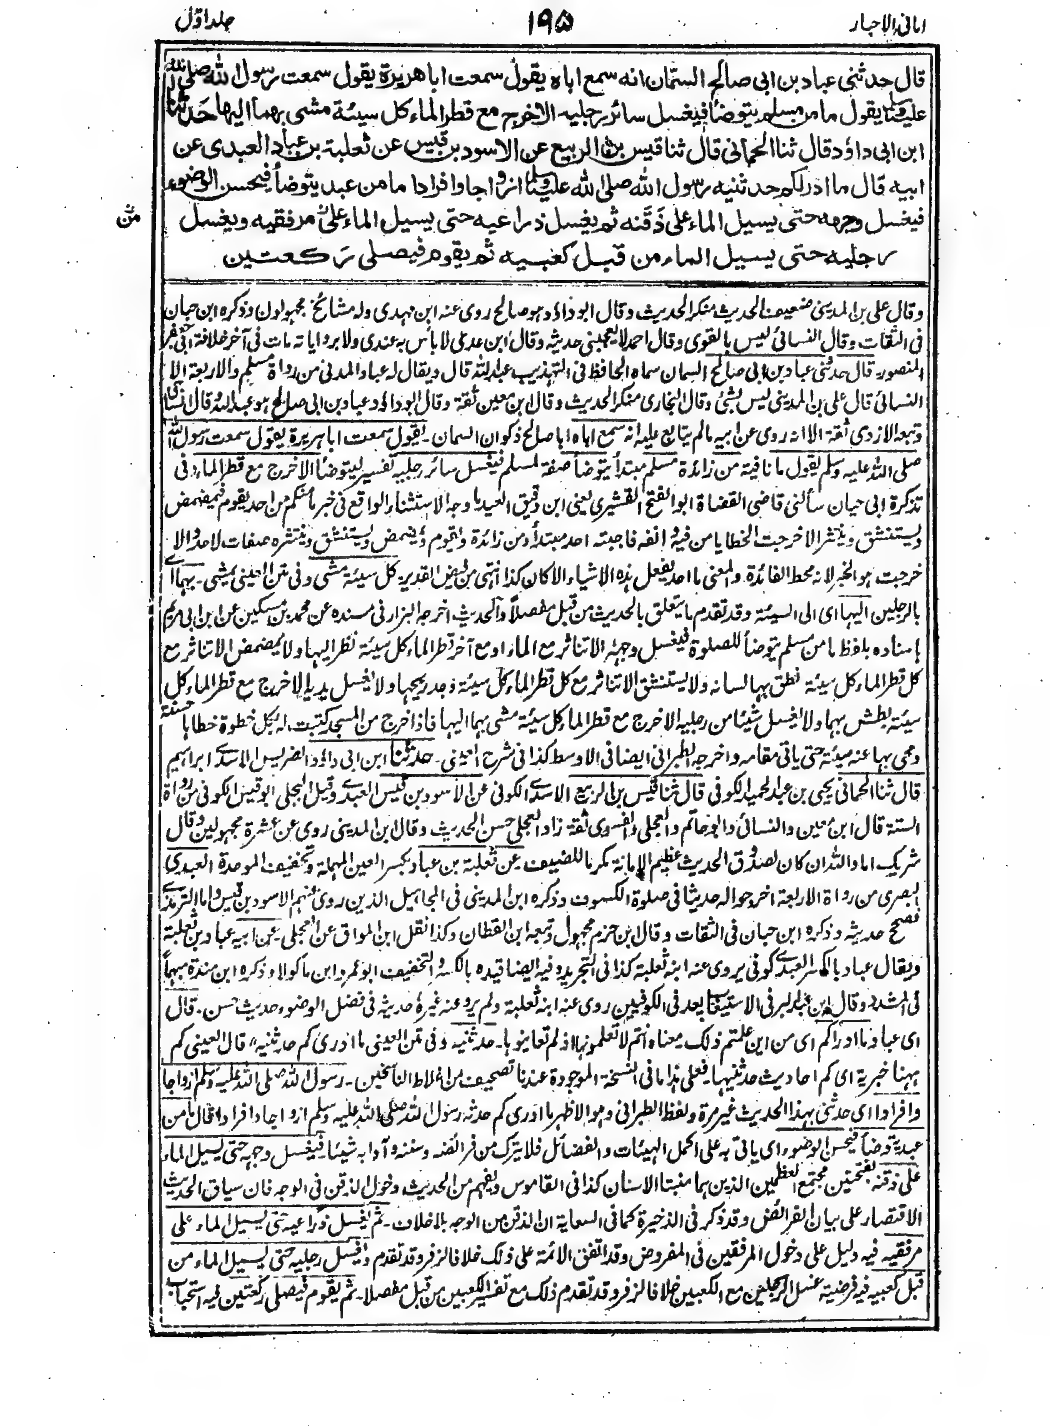 امانی الاحبار
۱۹۵
جلد اوّل
قال حدثنی عباد بن ابی صالح السمّان انه سمع اباه يقول سمعت اباهريرة يقول سمعت رسول الله صلی الله
عليه وسلم يقول ما من مسلم يتوضأ فيغسل سائر رجليه الاخرج مع قطر الماء كل سيئة مشی بهما اليها حدثنا
ابن ابی داؤد قال ثنا الحمانی قال ثنا قيس بن الربيع عن الاسود بن قيس عن ثعلبة بن عباد العبدی عن
ابيه قال ما ادری كم حدثنيه رسول الله صلی الله عليه وسلم ازواجا وافرادا ما من عبد يتوضأ فيحسن الوضوء
فيغسل وجهه حتی يسيل الماء علی ذقنه ثم يغسل ذراعيه حتی يسيل الماء علی مرفقيه ويغسل
رجليه حتی يسيل الماء من قبل كعبيه ثم يقوم فيصلی ركعتين
وقال علی بن المدينی ضعيف الحديث منكر الحديث وقال ابو داؤد هو صالح روی عنه ابن مهدی وله مشائخ مجهولون وذكره ابن حبان
فی الثقات وقال النسائی ليس بالقوی وقال احمد لا يعجبنی حديثه وقال ابن عدی لا باس به عندی ولا برواياته مات فی آخر خلافة ابی جعفر
المنصور قال حدثنی عباد بن ابی صالح السمان سماه الحافظ فی التهذيب عبد الله قال ويقال له عباد المدنی من رواة مسلم والاربعة الا
النسائی قال علی بن المدينی ليس بشئ وقال البخاری منكر الحديث وقال ابن معين ثقة وقال ابو داؤد عباد بن ابی صالح هو عبد الله قال الساجی
وتبعه الازدی ثقة الا انه روی عن ابيه ما لم يتابع عليه انه سمع اباه ابا صالح ذكوان السمان ـ يقول سمعت اباهريرة يقول سمعت رسول الله
صلی الله عليه وسلم يقول ما نافية من زائدة مسلم مبتدأ يتوضأ صفة لمسلم فيغسل سائر رجليه تفسير ليتوضأ الاخرج مع قطر الماء فی
تذكرة ابی حيان سألنی قاضی القضاة ابو الفتح القشيری يعنی ابن دقيق العيد ما وجه الاستثناء الواقع فی خبر ما منكم من احد يقوم فيمضمض
ويستنشق وينتثر الا خرجت الخطايا من فيه وانفه فاجبته احد مبتدأ ومن زائدة ويقوم ويمضمض ويستنشق وينتثر صفات لاحد والا
خرجت هو الخبر لانه محط الفائدة والمعنی ما احد يفعل هذه الاشياء الا كان كذا انتهی من فيض القدير كل سيئة مشی وفی متن العينی يمشی ـ بهما ای
بالرجلين اليها ای الی السيئة وقد تقدم ما يتعلق بالحديث من قبل مفصلا والحديث اخرجه البزار فی مسنده عن محمد بن مسكين عن ابن ابی مريم
باسناده بلفظ ما من مسلم يتوضأ للصلوة فيغسل وجهه الا تناثر مع الماء او مع آخر قطر الماء كل سيئة نظر اليها ولا يمضمض الا تناثر مع
كل قطر الماء كل سيئة نطق بها لسانه ولا يستنشق الا تناثر مع كل قطر الماء كل سيئة وجد ريحها ولا يغسل يديه الاخرج مع قطر الماء كل
سيئة بطش بها ولا يغسل شيئا من رجليه الاخرج مع قطر الماء كل سيئة مشی بهما اليها فاذا خرج من المسجد كتبت له بكل خطوة خطاها حسنة
ومحی بها عنه سيئة حتی ياتی مقامه واخرجه الطبرانی ايضا فی الاوسط كذا فی شرح العينی ـ حدثنا ابن ابی داؤد الضرير الاسدی ابراهيم
قال ثنا الحمانی يحيی بن عبد الحميد الكوفی قال ثنا قيس بن الربيع الاسدی الكوفی عن الاسود بن قيس العبدی وقيل البجلی ابو قيس الكوفی من رواة
الستة قال ابن معين والنسائی وابو حاتم والعجلی والفسوی ثقة زاد العجلی حسن الحديث وقال ابن المدينی روی عن عشرة مجهولين وقال
شريك اما والله ان كان لصدوق الحديث عظيم الامانة مكرما للضيف عن ثعلبة بن عباد بكسر العين المهملة وتخفيف الموحدة العبدی
البصری من رواة الاربعة اخرجوا له حديثا فی صلوة الكسوف وذكره ابن المدينی فی المجاهيل الذين روی عنهم الاسود بن قيس واما الترمذی
فصحح حديثه وذكره ابن حبان فی الثقات وقال ابن حزم مجهول وتبعه ابن القطان وكذا نقل ابن المواق عن العجلی ـ عن ابيه عباد بن ثعلبة
ويقال عباد بالكسر العبدی كوفی يروی عنه ابنه ثعلبة كذا فی التجريد وفيه ايضا قيده بالكسر والتخفيف ابو عمر وابن ماكولا وذكره ابن منده مبهما
فی المشدد وقال ابن عبد البر فی الاستيعاب يعد فی الكوفيين روی عنه ابنه ثعلبة ولم يرو عنه غيره حديثه فی فضل الوضوء حديث حسن ـ قال
ای عباد ما ادری كم ای من اين علمتم ذلك معناه انتم لا تعلمونها اذ لم تعاينوها ـ حدثنيه وفی متن العينی ما ادری كم حدثنيه قال العينی كم
ههنا خبرية ای كم احاديث حدثنيها فعلی هذا ما فی النسخة الموجودة عندنا تصحيف من اغلاط الناسخين ـ رسول الله صلی الله عليه وسلم ازواجا
وافرادا ای حدثنی بهذا الحديث غير مرة ولفظ الطبرانی وهو الاظهر ما ادری كم حدثه رسول الله صلی الله عليه وسلم ازواجا وافرادا قال ما من
عبد يتوضأ فيحسن الوضوء ای ياتی به علی اكمل الهيئات والفضائل فلا يترك من فرائضه وسننه وآدابه شيئا ـ فيغسل وجهه حتی يسيل الماء
علی ذقنه بفتحتين مجتمع العظمين الذين هما منبتا الاسنان كذا فی القاموس ويفهم من الحديث دخول الذقن فی الوجه فان سياق الحديث
الاقتصار علی بيان الفرائض وقد ذكر فی الذخيرة كما فی السعاية ان الذقن من الوجه بلا خلاف ـ ثم يغسل ذراعيه حتی يسيل الماء علی
مرفقيه فيه دليل علی دخول المرفقين فی المفروض وقد اتفق الائمة علی ذلك خلافا لزفر وقد تقدم ويغسل رجليه حتی يسيل الماء من
قبل كعبيه فيه فرضية غسل الرجلين مع الكعبين خلافا لزفر وقد تقدم ذلك مع تفسير الكعبين من قبل مفصلا ـ ثم يقوم فيصلی ركعتين فيه استحباب